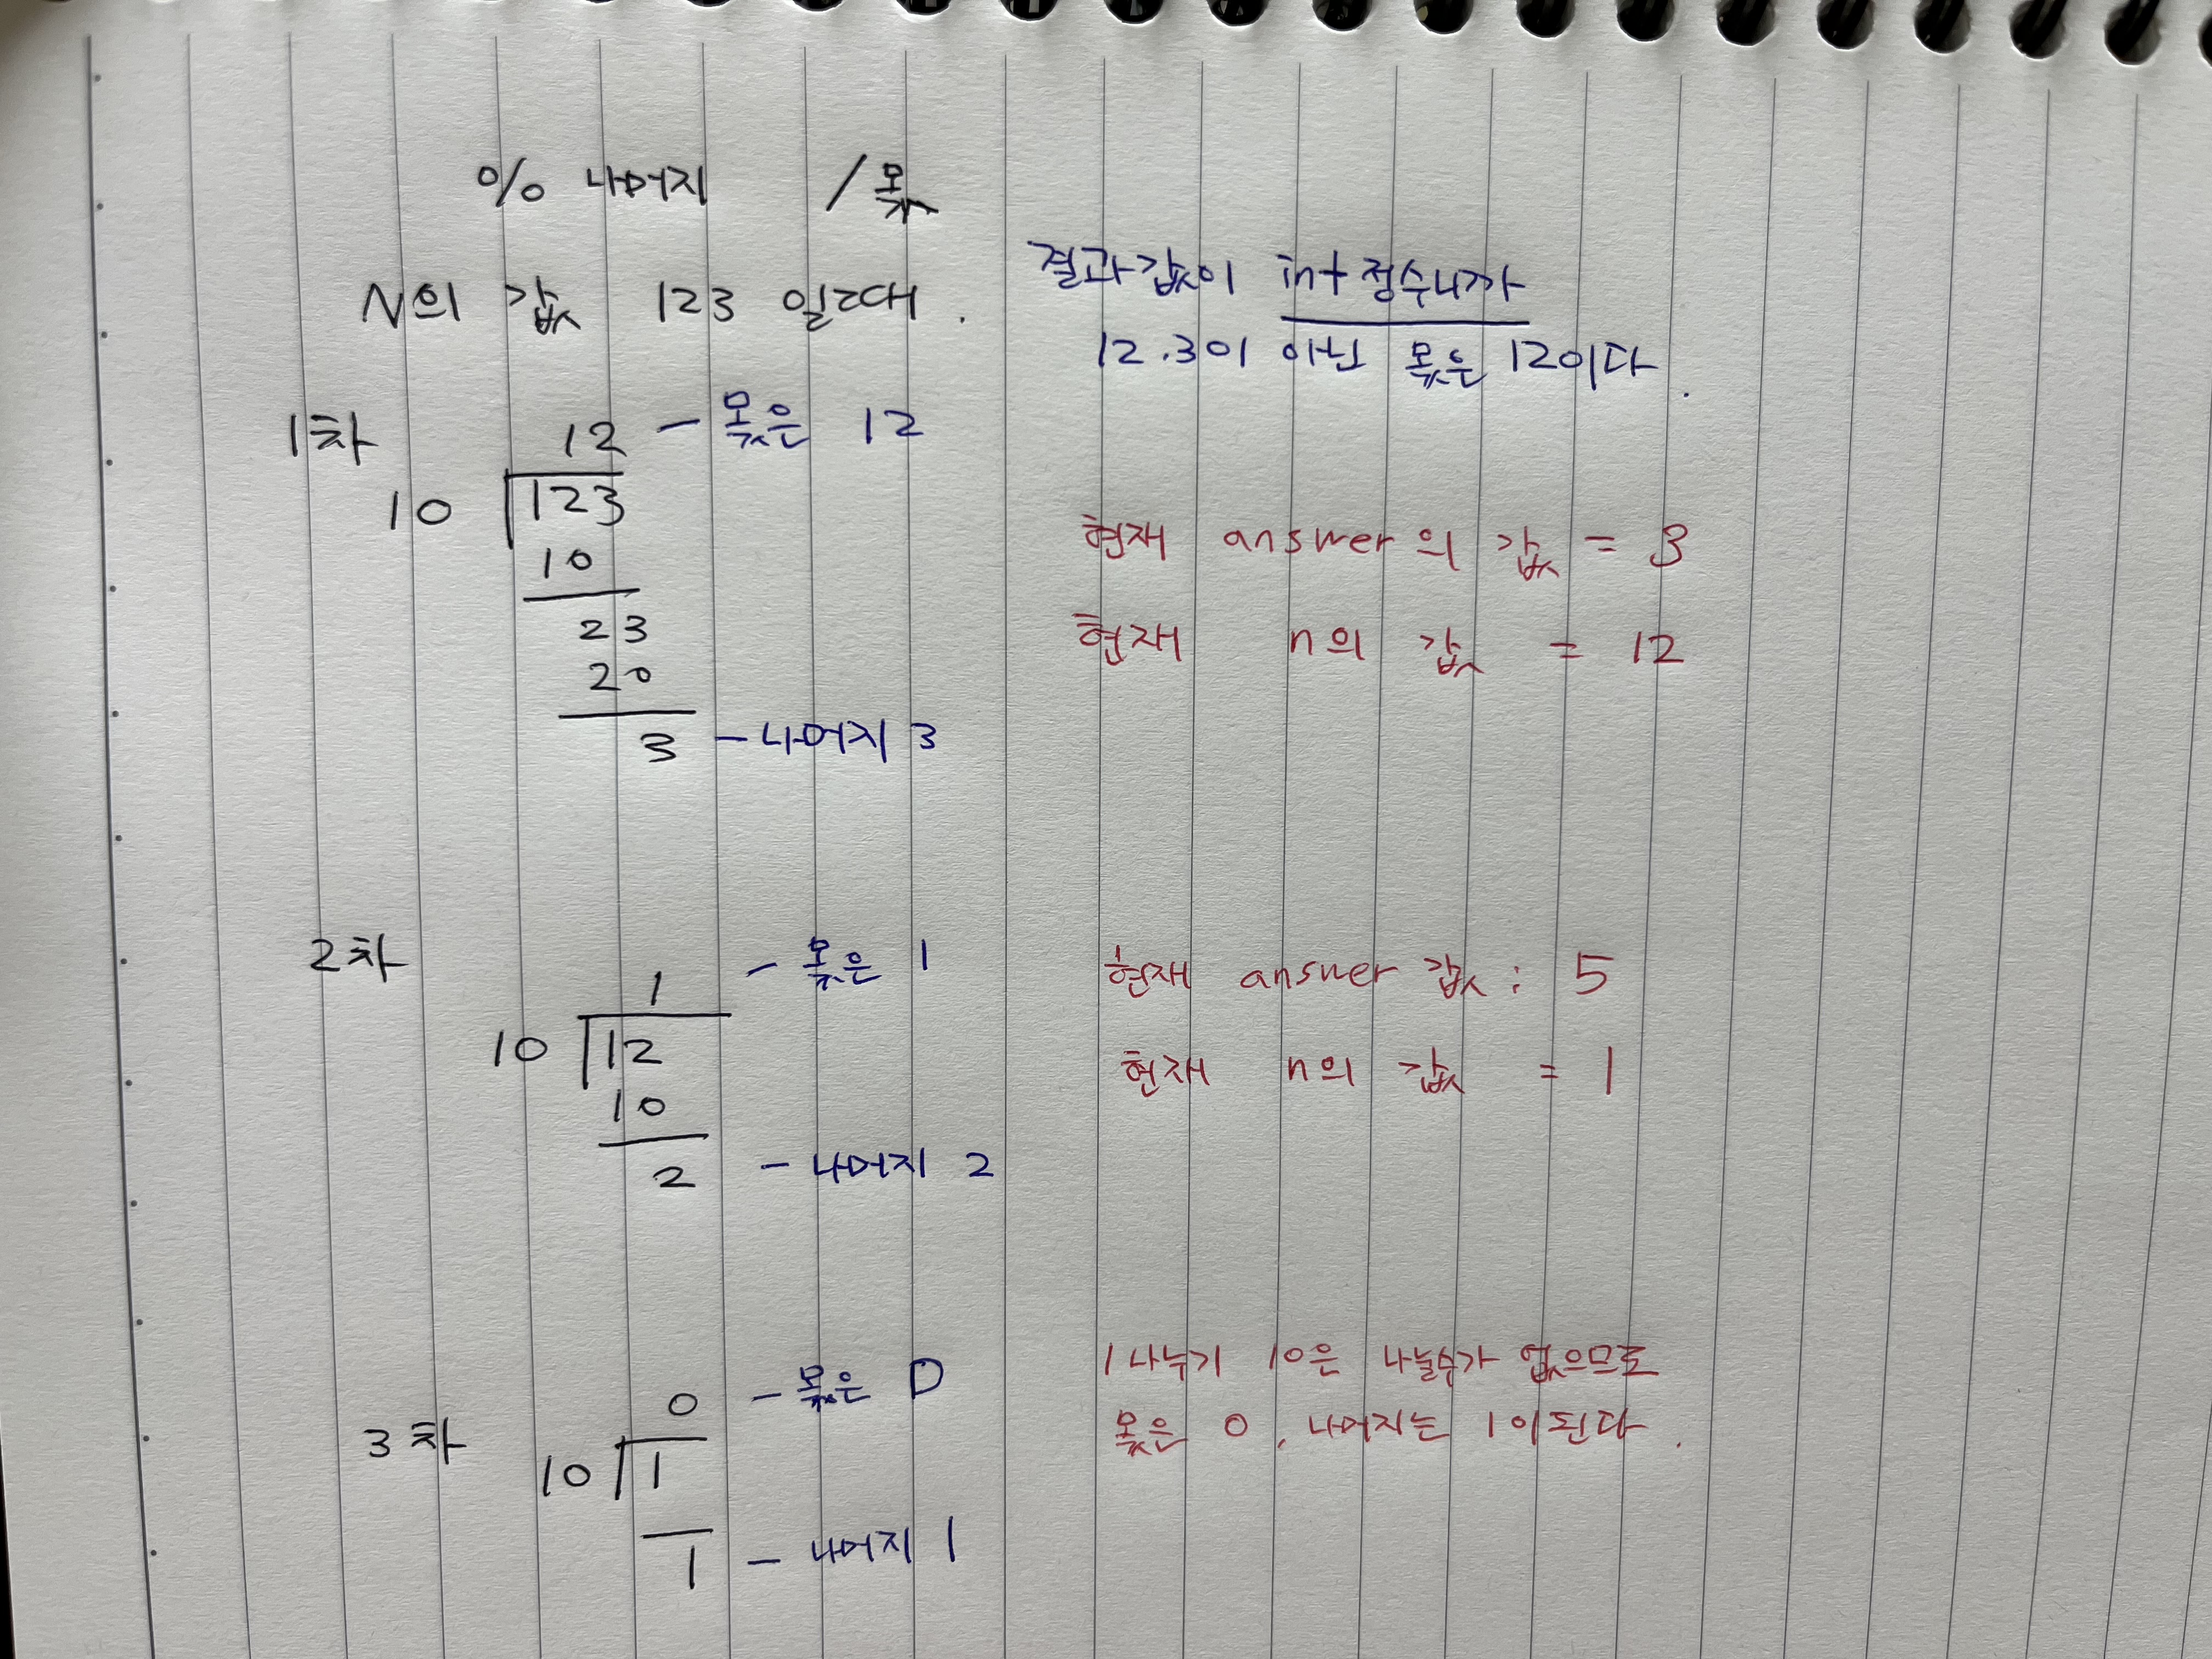 % 나머지 / 몫
N의 값 123 일때.
결과값이 int 정수니까
12.3이 아닌 몫은 12이다.
1차
12 - 몫은 12
10 123
10
23
20
3 - 나머지 3
현재 answer의 값 = 3
현재 n의 값 = 12
2차
1 - 몫은 1
10 12
10
2 - 나머지 2
현재 answer 값 : 5
현재 n의 값 = 1
3차
0 - 몫은 0
10 1
1 - 나머지 1
1 나누기 10은 나눌수가 없으므로
몫은 0, 나머지는 1이된다.